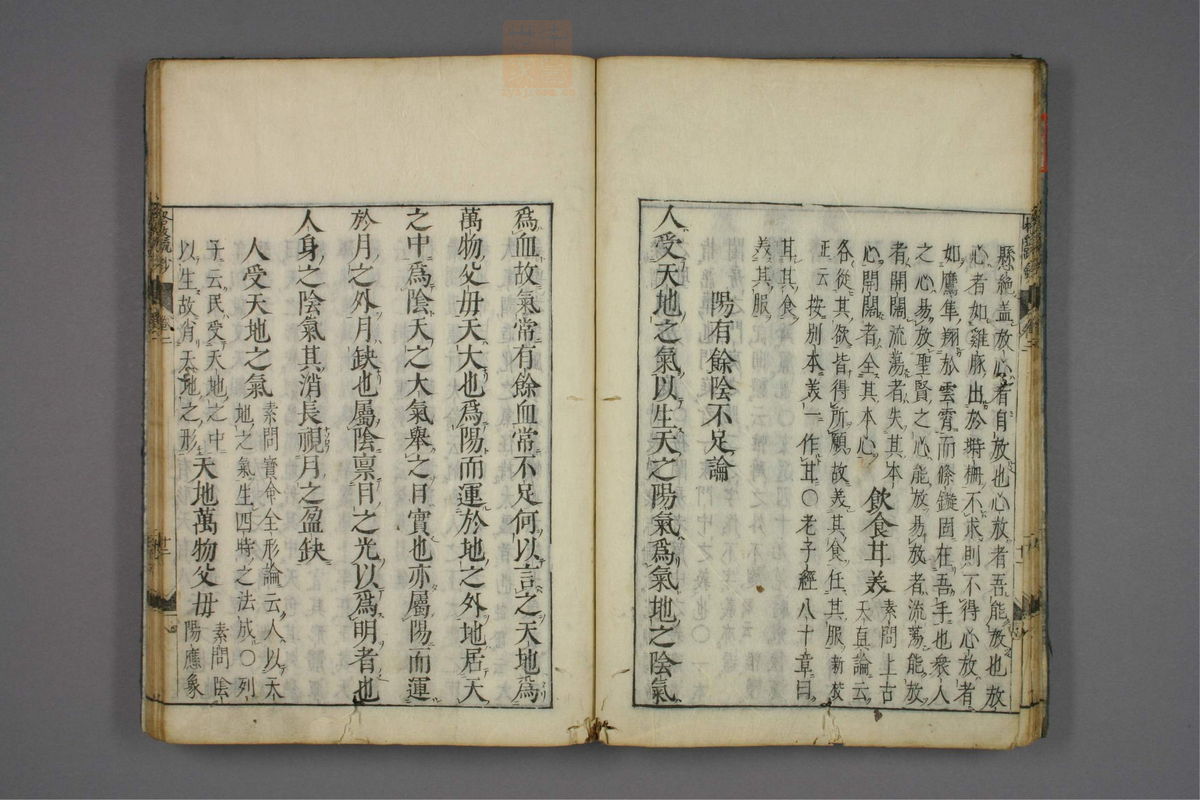 懸絶盖放心者自放也心放者吾能放也放
心者如雞豚出於塒柵不求則不得心放者
如鷹隼翔於雲霄而絛鏇固在吾手也衆人
之心易放聖賢之心能放易放者流蕩能放
者開闊流蕩者失其本
心開闊者全其本心
飲食甘美
素問上古
天真論云
各從其欲皆得所願故美其食任其服新校
正云
按别本美一作甘○老子經八十章曰
甘其食
美其服
陽有餘陰不足論
人受天地之氣以生天之陽氣爲氣地之陰氣
爲血故氣常有餘血常不足何以言之天地爲
萬物父母天大也爲陽而運於地之外地居天
之中爲陰天之大氣舉之日實也亦屬陽而運
於月之外月缺也屬陰禀日之光以爲明者也
人身之陰氣其消長視月之盈缺
人受天地之氣
素問寶命全形論云人以天
地之氣生四時之法成○列
子云民受天地之中
以生故肖天地之形
天地萬物父母
素問陰
陽應象